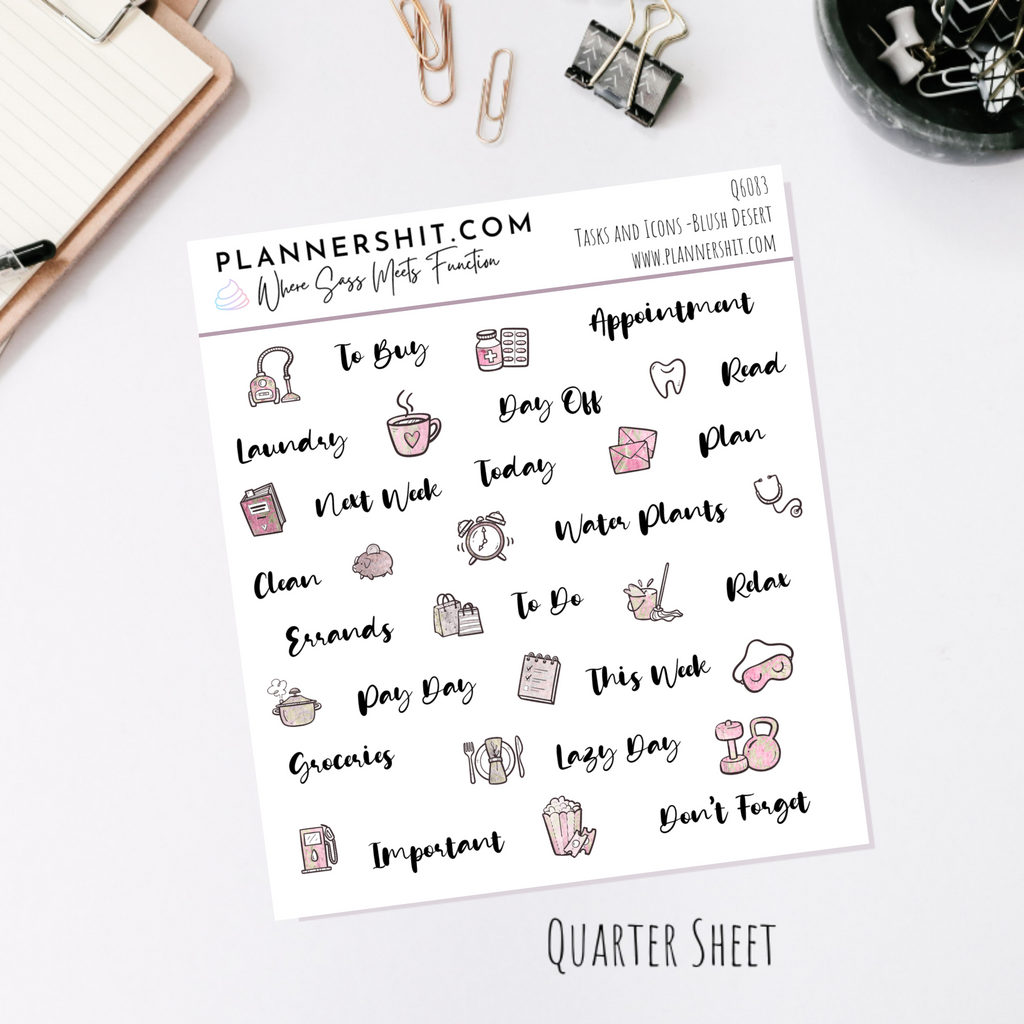 PLANNERSHIT.COM
Where Sass Meets Function
Q6083
Tasks and Icons -Blush Desert
www.plannershit.com
To Buy
Appointment
Read
Laundry
Day Off
Plan
Next Week
Today
Water Plants
Clean
To Do
Relax
Errands
Pay Day
This Week
Groceries
Lazy Day
Don't Forget
Important
Quarter Sheet